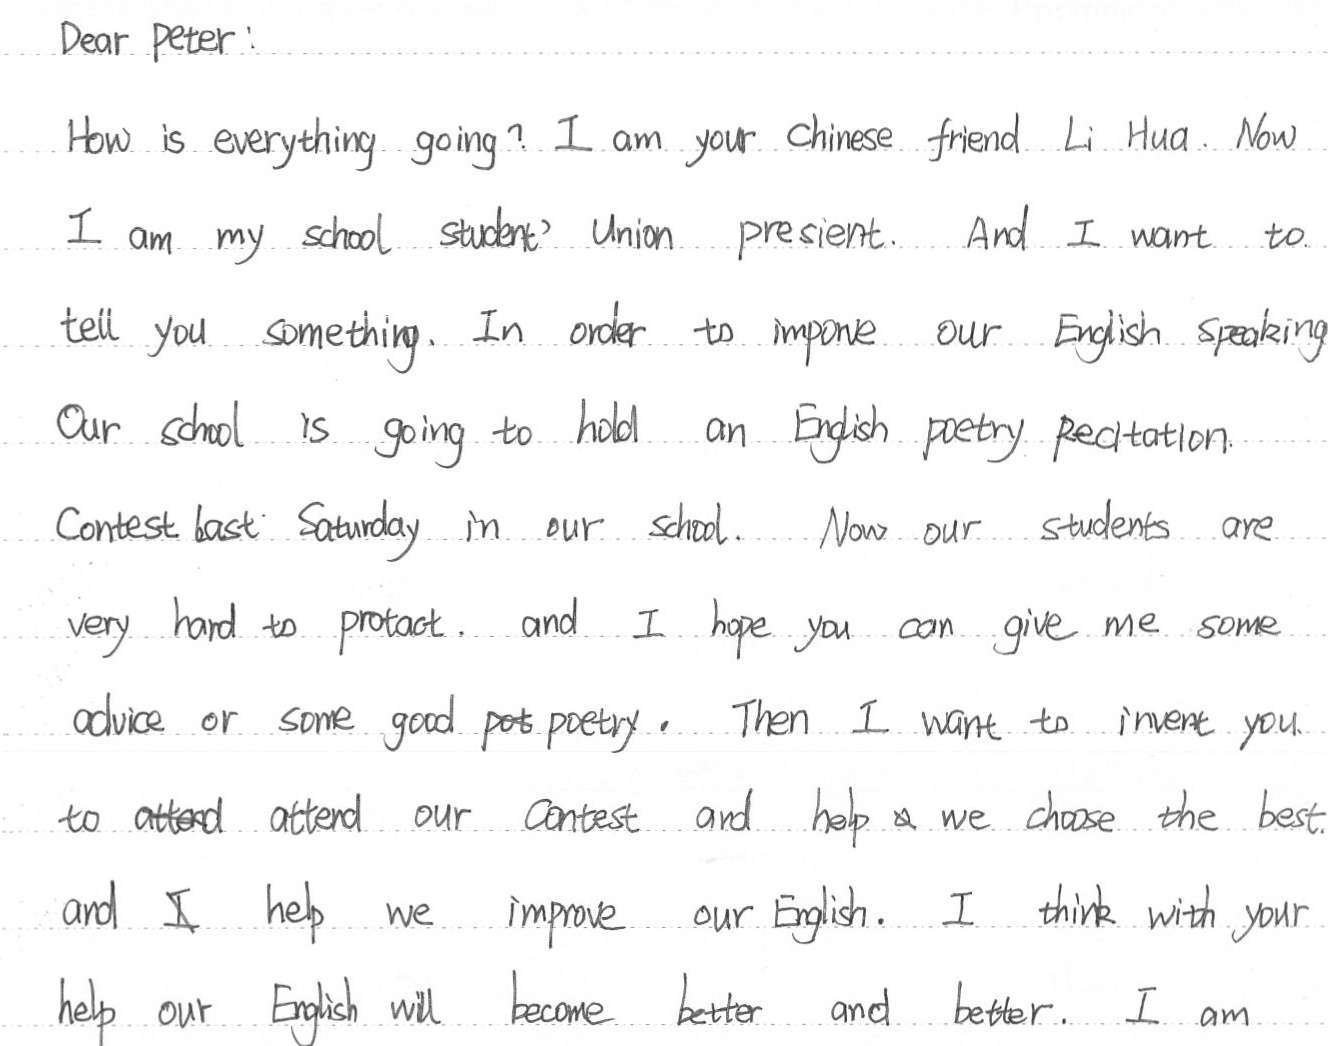 Dear Peter:
How is everything going? I am your Chinese friend Li Hua. Now
I am my school student' Union presient. And I want to
tell you something. In order to impone our English speaking
Our school is going to hold an English poetry Recitation.
Contest last Saturday in our school. Now our students are
very hard to protact. and I hope you can give me some
advice or some good poetry. Then I want to invent you.
to attend our Contest and help we choose the best.
and help we improve our English. I think with your
help our English will become better and better. I am